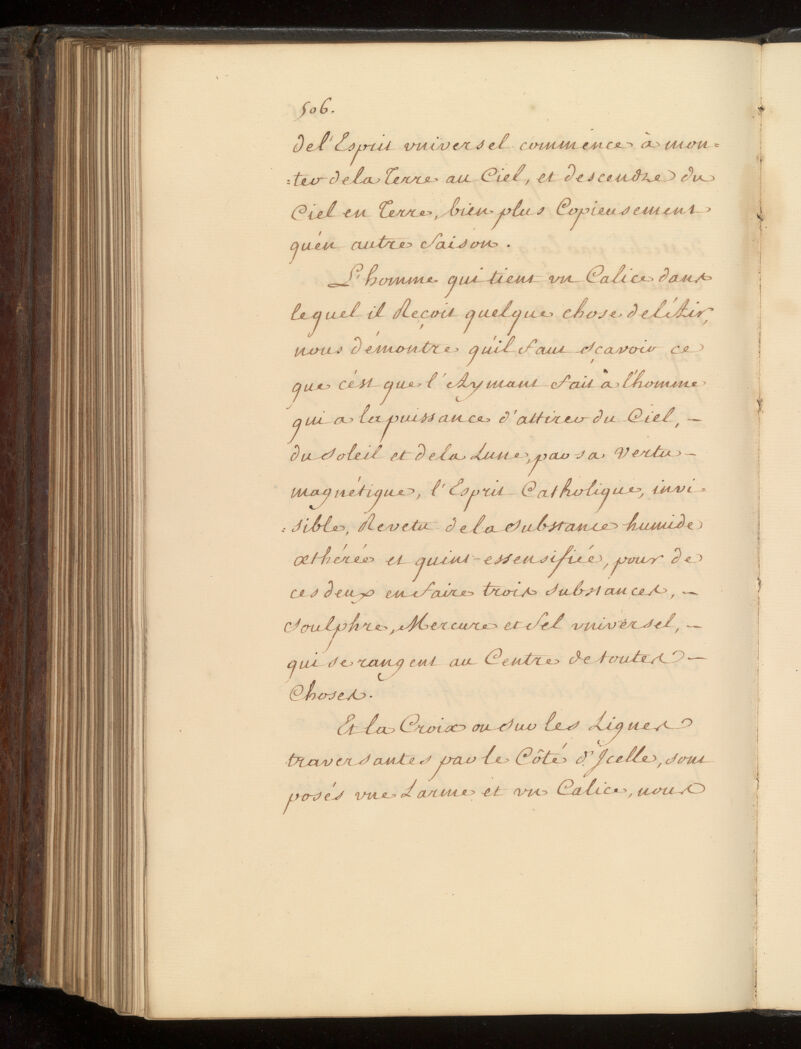 506.
de l'Esprit vniversel commence à mon=
=ter de la Terre au Ciel, et descendre du
Ciel en Terre, bien plus Copieusement
qu'en autre Saison.
L'homme qui tient vn Calice dans
lequel il Reçoit quelque chose de l'Air,
nous démontre qu'il faut sçavoir ce
que c'est que l'Aymant fait à l'homme
qui a la puissance d'attirer du Ciel, -
du Soleil et de la Lune, par sa Vertu -
magnétique, l'Esprit Catholique, invi=
=sible, Revetu de la Substance humide
œthérée et quint-essensifiée, pour de
ces deux en faire trois Substances, -
Soulphre, Mercure et Sel vniversel, -
qui se rangent au Centre de toutes -
Choses.
Et la Croix ou sur les Lignes
traversantes par le Côté d'Icelle, sont
posés vne Larme et vn Calice, nous